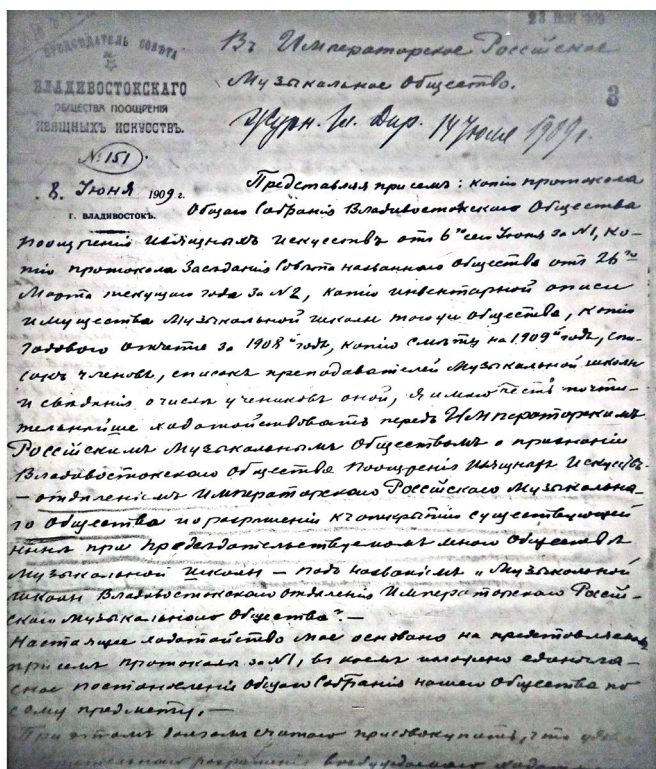 23 НОЯ 1909
ПРЕДСЕДАТЕЛЬ СОВѢТА
ВЛАДИВОСТОКСКАГО
ОБЩЕСТВА ПООЩРЕНІЯ
ИЗЯЩНЫХЪ ИСКУССТВЪ.
№ 151
8 Іюня 1909 г.
Г. ВЛАДИВОСТОКЪ.
Въ Императорское Россійское
Музыкальное Общество.
3
Журн. Гл. Дир. 14 Июля 1909 г.
Представляя при семъ: копію протокола
Общаго Собранія Владивостокскаго Общества
поощренія изящныхъ искусствъ отъ 6го сего Іюня за №1, ко-
пію протокола Засѣданія Совѣта названнаго общества отъ 26го
Марта текущаго года за №2, копію инвентарной описи
имущества Музыкальной школы того-же общества, копію
годового отчета за 1908й годъ, копію смѣты на 1909й годъ, спи-
сокъ членовъ, списокъ преподавателей Музыкальной школы
и свѣдѣнія о числѣ учениковъ оной, я имѣю честь почти-
тельнѣйше ходатайствовать передъ Императорскимъ
Россійскимъ Музыкальнымъ Обществомъ о признаніи
Владивостокскаго Общества Поощренія Изящныхъ Искусствъ
— отдѣленіемъ Императорскаго Россійскаго Музыкальна-
го Общества и о разрѣшеніи къ открытію существующей
нынѣ при предсѣдательствуемомъ мною Обществѣ
Музыкальной школы — подъ названіемъ „Музыкальной
школы Владивостокскаго отдѣленія Императорскаго Россій-
скаго Музыкальнаго Общества". —
Настоящее ходатайство мое основано на представляемомъ
при семъ протоколѣ за №1, въ коемъ изложено единоглас-
ное постановленіе Общаго Собранія нашего Общества по
сему предмету. —
При этомъ долгомъ считаю присовокупить, что
разрѣшенія возбуждаемаго